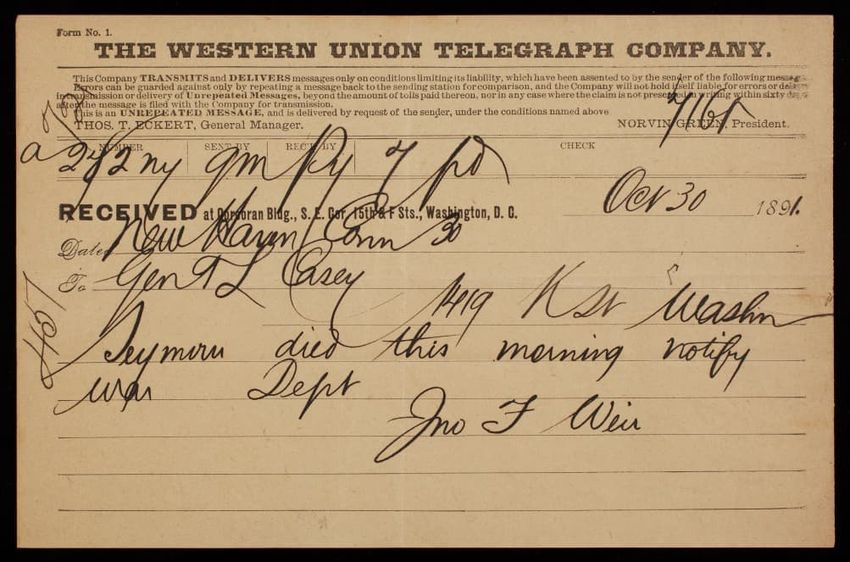 Form No. 1.
THE WESTERN UNION TELEGRAPH COMPANY.
This Company TRANSMITS and DELIVERS messages only on conditions limiting its liability, which have been assented to by the sender of the following message.
Errors can be guarded against only by repeating a message back to the sending station for comparison, and the Company will not hold itself liable for errors or delays
in transmission or delivery of Unrepeated Messages, beyond the amount of tolls paid thereon, nor in any case where the claim is not presented in writing within sixty days
after the message is filed with the Company for transmission.
This is an UNREPEATED MESSAGE, and is delivered by request of the sender, under the conditions named above
THOS. T. ECKERT, General Manager. NORVIN GREEN, President.
NUMBER SENT BY REC'D BY CHECK
282 ny gm Ry 7 pd
RECEIVED at Corcoran Bldg., S. E. Cor. 15th & F Sts., Washington, D. C. Oct 30 1891.
Dated New Haven Conn 30
To Gen T L Casey
1419 K St Washn
457
Seymour died this morning notify
War Dept
Jno F Weir